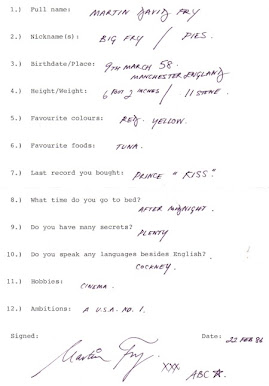 1.) Full name: MARTIN DAVID FRY
2.) Nickname(s): BIG FRY / PIES.
3.) Birthdate/Place: 9TH MARCH 58.
MANCHESTER ENGLAND
4.) Height/Weight: 6 FOOT 2 INCHES / 11 STONE.
5.) Favourite colours: RED. YELLOW.
6.) Favourite foods: TUNA.
7.) Last record you bought: PRINCE "KISS."
8.) What time do you go to bed?
AFTER MIDNIGHT.
9.) Do you have many secrets?
PLENTY
10.) Do you speak any languages besides English?
COCKNEY.
11.) Hobbies:
CINEMA.
12.) Ambitions: A U.S.A. NO. 1.
Signed: Date: 22 FEB 86
Martin Fry XXX ABC